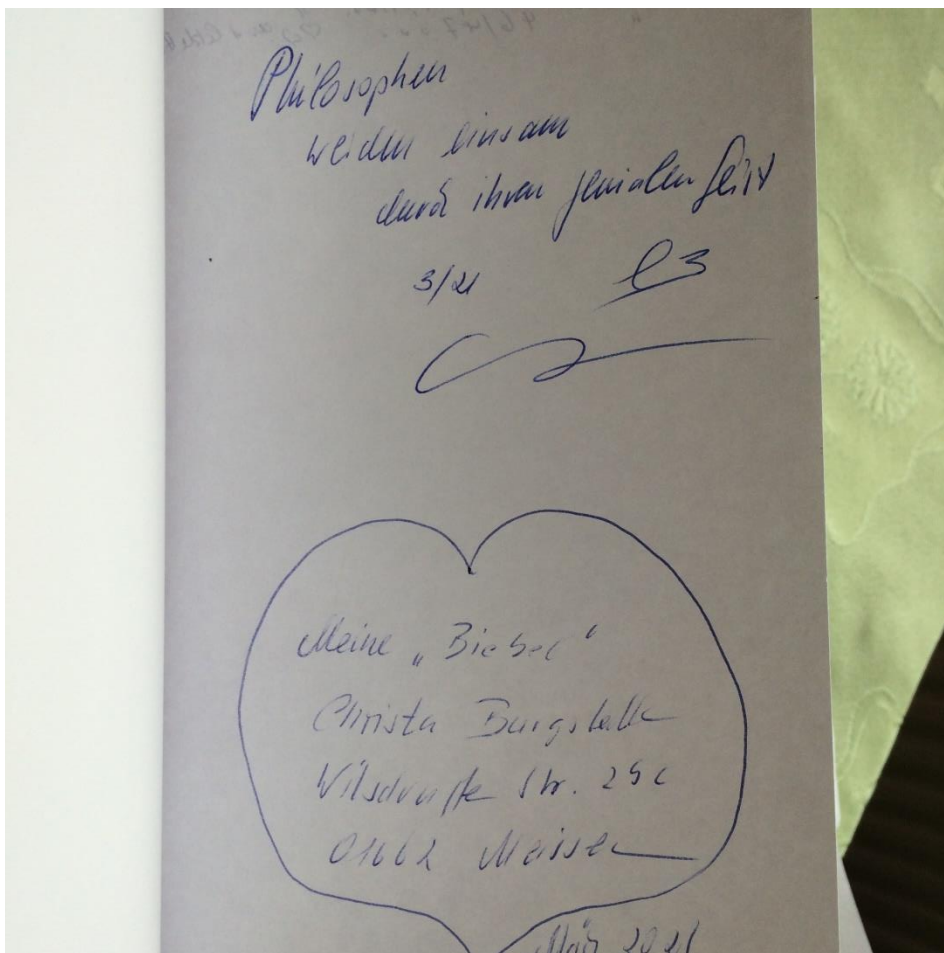 Philosophen
werden einsam
durch ihren genialen Geist
3/21
Meine „Bieber“
Christa Burgstaller
Wilsdruffer Str. 29c
01662 Meissen
März 2021